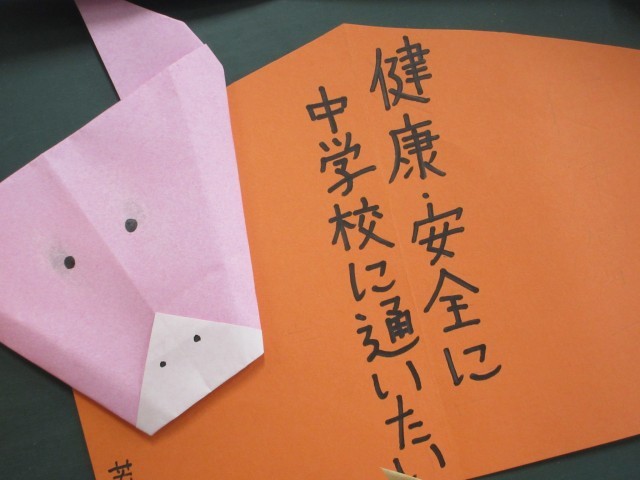 健康・安全に
中学校に通いたい